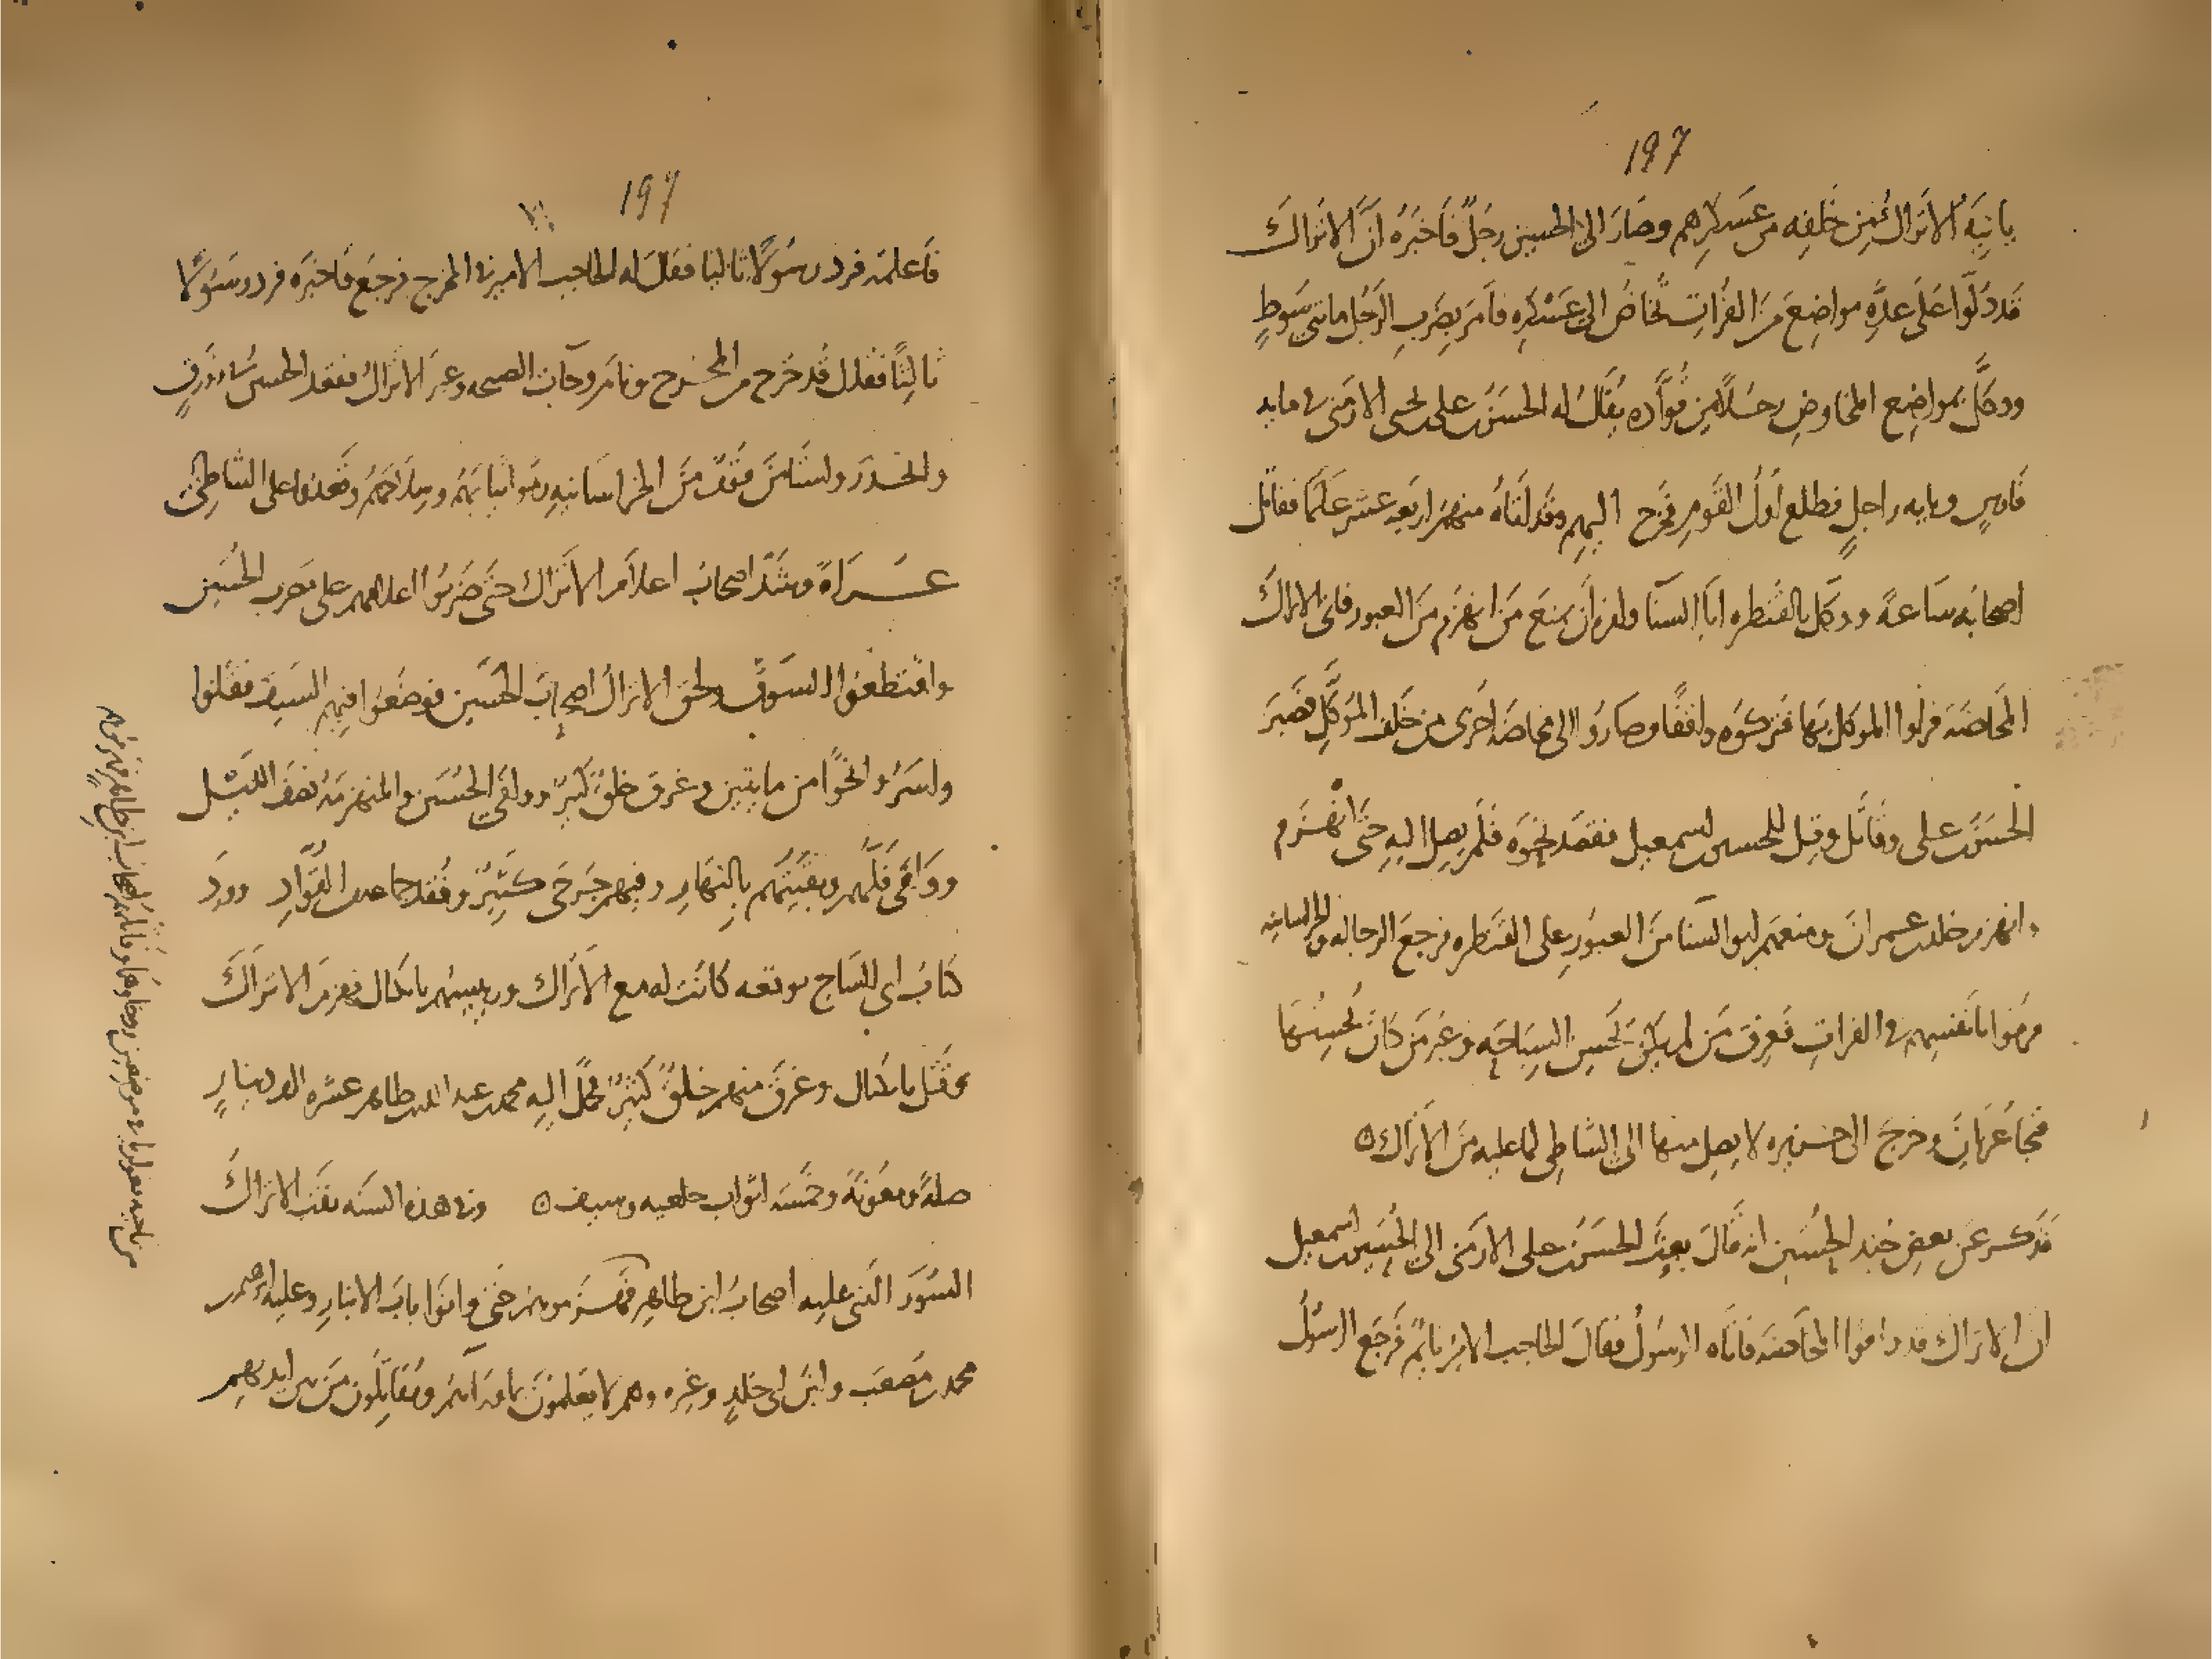 ١٩٦
يأتيه الأتراك من خلفه من عسكرهم وصار الى الحسين رجل فاخبره ان الاتراك
قد دلوا على عدة مواضع من الفرات تخاض الى عسكره فامر بضرب الرجل مائتي سوط
ووكل بمواضع المخاوض رجلا من قواده يقال له الحسين بن على بن يحيى الارمنى فى مايه
فارس ومايه راجل فطلع اول القوم فخرج اليهم وقد اتاه منهم اربعه عشر علما فقاتل
اصحابه ساعة ووكل بالقنطره ابا السنا وامره ان يمنع من انهزم من العبور فاتى الاتراك
المخاضه فراوا الموكل بها فتركوه واقفا وصاروا الى مخاضه اخرى من خلف الموكل فصبر
الحسين بن على وقاتل وقيل للحسين بن اسمعيل فقصد نحوه فلم يصل اليه حتى انهزم
وانهزم خلد بن عمران ومنعهم ابو السنا من العبور على القنطره فرجع الرجاله والخراسانيه
فرموا بانفسهم فى الفرات فغرق من لم يكن يحسن السباحه وعبر من كان يحسنها
فنجا عريان وخرج الى جزيره لا يصل منها الى الشاطى لما عليه من الاتراك
فذكر عن بعض جند الحسين انه قال بعث الحسين بن على الارمنى الى الحسين بن اسمعيل
ان الاتراك قد وافوا المخاضه فاتاه الرسول فقال الحاجب الامير نايم فرجع الرسول
١٩٧
فاعلمه فرد رسولا ثانيا فقال له الحاجب الامير فى المخرج فرجع فاخبره فرد رسولا
ثالثا فقال قد خرج من المخرج ونام وجات الصيحه وعبر الاتراك فقعد الحسين فى زورق
وانحدر واستاسر قوم من الخراسانيه رموا ثيابهم وسلاحهم وقعدوا على الشاطئ
عراة وشد اصحاب اعلام الاتراك حتى ضربوا اعلامهم على مضرب الحسين
واقتطعوا السوق ولحق الاتراك اصحاب الحسين فوضعوا فيهم السيف فقتلوا
واسروا نحوا من مايتين وغرق خلق كثير ووافى الحسين والمنهزمه نصف الليل
ووافى فلهم وبقيتهم بالنهار وفيهم جرحى كثير وفقد جماعه من القواد وورد
كتاب ابى الساج بوقعه كانت له مع الاتراك ورييسهم بايكباك فهزم الاتراك
وقتل بايكباك وغرق منهم خلق كثير فحمل اليه محمد بن عبد الله بن طاهر عشره الف دينار
صلة ومعونة وخمسه اثواب خلعه وسيف وفى هذه السنه نقب الاتراك
السور الذى عليه اصحاب ابن طاهر حتى واتوا باب الانبار وعليه ابرهيم
محمد بن مصعب وابن ابى خلد وغيره وهم لا يعلمون بما وراهم ويقاتلون من بين ايديهم
من ناحيه اصحاب ابن طاهر